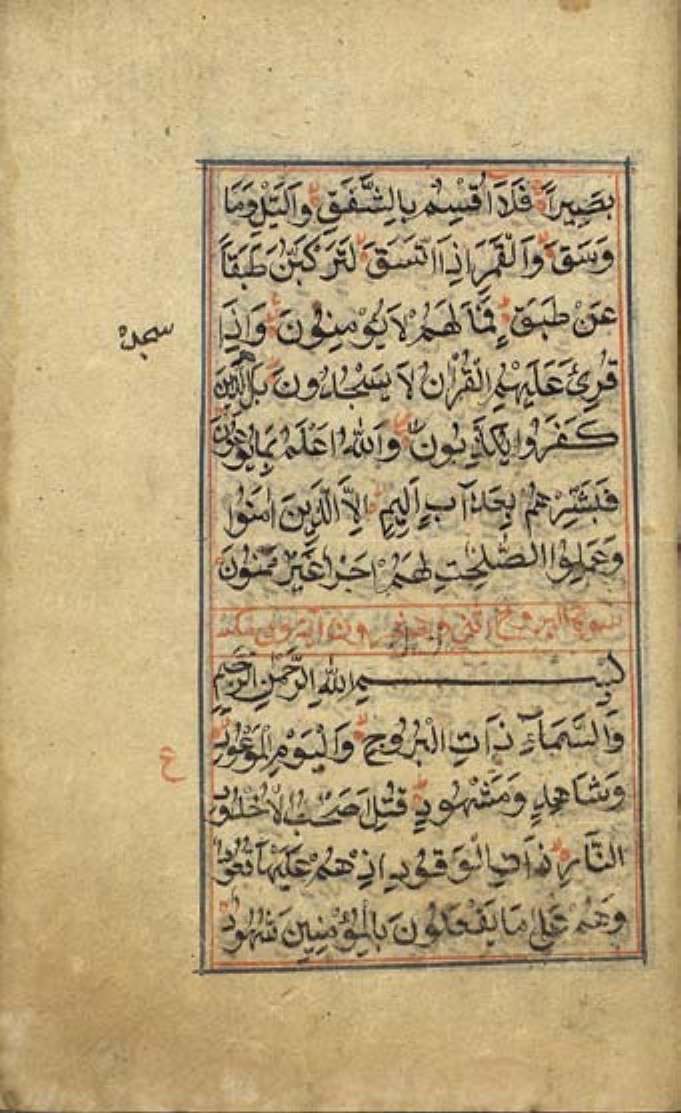 بَصِيرًا فَلَا اُقْسِمُ بِالشَّفَقِ وَالَّيْلِ وَمَا
وَسَقَ وَالْقَمَرِ اِذَا اتَّسَقَ لَتَرْكَبُنَّ طَبَقًا
عَنْ طَبَقٍ فَمَا لَهُمْ لَا يُؤْمِنُونَ وَاِذَا
سجده
قُرِئَ عَلَيْهِمُ الْقُرْاٰنُ لَا يَسْجُدُونَ بَلِ الَّذِينَ
كَفَرُوا يُكَذِّبُونَ وَاللّٰهُ اَعْلَمُ بِمَا يُوعُونَ
فَبَشِّرْهُمْ بِعَذَابٍ اَلِيمٍ اِلَّا الَّذِينَ اٰمَنُوا
وَعَمِلُوا الصّٰلِحٰتِ لَهُمْ اَجْرٌ غَيْرُ مَمْنُونٍ
سورة البروج
بِسْمِ اللّٰهِ الرَّحْمٰنِ الرَّحِيمِ
وَالسَّمَآءِ ذَاتِ الْبُرُوجِ وَالْيَوْمِ الْمَوْعُودِ
ع
وَشَاهِدٍ وَمَشْهُودٍ قُتِلَ اَصْحٰبُ الْاُخْدُودِ
النَّارِ ذَاتِ الْوَقُودِ اِذْ هُمْ عَلَيْهَا قُعُودٌ
وَهُمْ عَلٰى مَا يَفْعَلُونَ بِالْمُؤْمِنِينَ شُهُودٌ